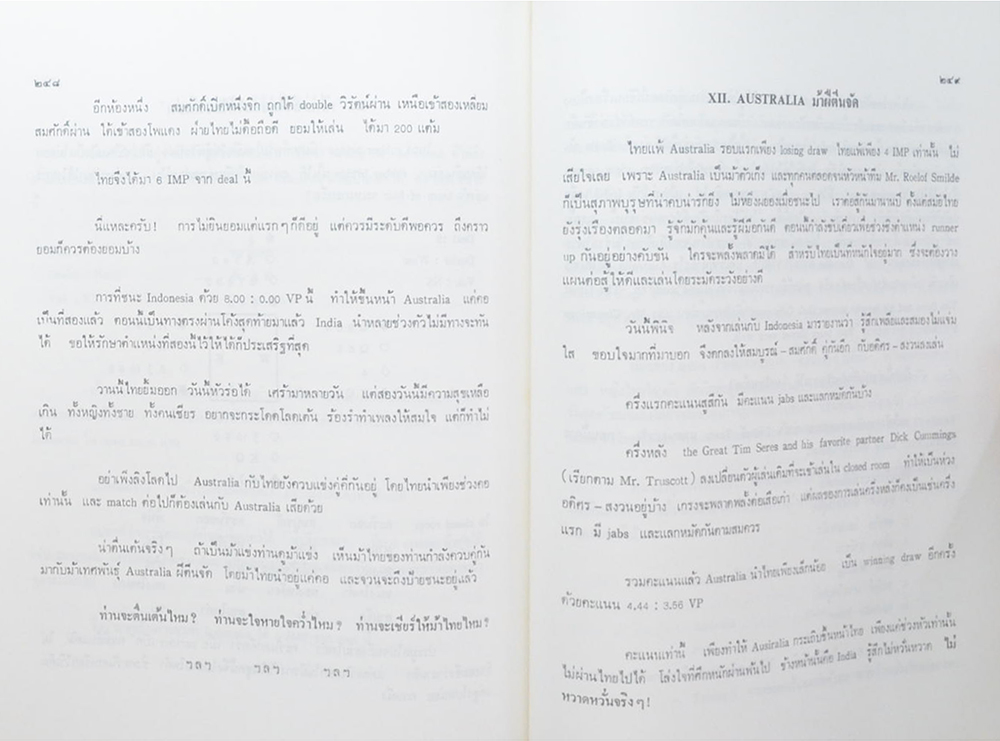 ๒๔๘
อีกห้องหนึ่ง สมศักดิ์เปิดหนึ่งจิก ถูกใต้ double วิรัตน์ผ่าน เหนือเข้าสองเหลี่ยม
สมศักดิ์ผ่าน ใต้เข้าสองโพแดง ฝ่ายไทยไม่ดื้อถือดี ยอมให้เล่น ได้มา 200 แต้ม
ไทยจึงได้มา 6 IMP จาก deal นี้
นี่แหละครับ! การไม่ยินยอมแต่แรกๆ ก็ดีอยู่ แต่ควรมีระดับดีพอควร ถึงคราว
ยอมก็ควรต้องยอมบ้าง
การที่ชนะ Indonesia ด้วย 8.00 : 0.00 VP นี้ ทำให้ขึ้นหน้า Australia แค่คอ
เป็นที่สองแล้ว ตอนนี้เป็นทางตรงผ่านโค้งสุดท้ายมาแล้ว India นำหลายช่วงตัวไม่มีทางจะทัน
ได้ ขอให้รักษาตำแหน่งที่สองนี้ไว้ให้ได้ก็ประเสริฐที่สุด
วานนี้ไทยยิ้มออก วันนี้หัวร่อได้ เศร้ามาหลายวัน แต่สองวันนี้มีความสุขเหลือ
เกิน ทั้งหญิงทั้งชาย ทั้งคนเชียร อยากจะกระโดดโลดเต้น ร้องรำทำเพลงให้สมใจ แต่ก็ทำไม่
ได้
อย่าเพิ่งลิงโลดไป Australia กับไทยยังควบแข่งคู่คี่กันอยู่ โดยไทยนำเพียงช่วงคอ
เท่านั้น และ match ต่อไปก็ต้องเล่นกับ Australia เสียด้วย
น่าตื่นเต้นจริงๆ ถ้าเป็นม้าแข่งท่านดูม้าแข่ง เห็นม้าไทยของท่านกำลังควบคู่กัน
มากับม้าเทศพันธุ์ Australia ฝีตีนจัด โดยม้าไทยนำอยู่แค่คอ และจวนจะถึงป้ายชนะอยู่แล้ว
ท่านจะตื่นเต้นไหม? ท่านจะใจหายใจคว่ำไหม? ท่านจะเชียร์ให้ม้าไทยไหม?
ฯลฯ ฯลฯ ฯลฯ
๒๔๙
XII. AUSTRALIA ม้าฝีตีนจัด
ไทยแพ้ Australia รอบแรกเพียง losing draw ไทยแพ้เพียง 4 IMP เท่านั้น ไม่
เสียใจเลย เพราะ Australia เป็นม้าตัวเก็ง และทุกคนตลอดจนหัวหน้าทีม Mr. Roelof Smilde
ก็เป็นสุภาพบุรุษที่น่าคบน่ารักยิ่ง ไม่หยิ่งผยองเมื่อชนะไป เราต่อสู้กันมานานปี ตั้งแต่สมัยไทย
ยังรุ่งเรืองตลอดมา รู้จักมักคุ้นและรู้ฝีมือกันดี ตอนนี้กำลังขับเคี่ยวเพื่อช่วงชิงตำแหน่ง runner
up กันอยู่อย่างคับขัน ใครจะพลั้งพลาดมิได้ สำหรับไทยเป็นที่หนักใจอยู่มาก ซึ่งจะต้องวาง
แผนต่อสู้ให้ดีและเล่นโดยระมัดระวังอย่างดี
วันนี้พินิจ หลังจากเล่นกับ Indonesia มารายงานว่า รู้สึกเพลียและสมองไม่แจ่ม
ใส ขอบใจมากที่มาบอก จึงตกลงให้สมบูรณ์ – สมศักดิ์ คู่กันอีก กับอดิศร – สงวนลงเล่น
ครึ่งแรกคะแนนสูสีกัน มีคะแนน jabs และแลกหมัดกันบ้าง
ครึ่งหลัง the Great Tim Seres and his favorite partner Dick Cummings
(เรียกตาม Mr. Truscott) ลงเปลี่ยนตัวผู้เล่นเดิมที่จะเข้าเล่นใน closed room ทำให้เป็นห่วง
อดิศร – สงวนอยู่บ้าง เกรงจะพลาดพลั้งต่อเสือเก่า แต่ผลของการเล่นครึ่งหลังก็คงเป็นเช่นครึ่ง
แรก มี jabs และแลกหมัดกันตามสมควร
รวมคะแนนแล้ว Australia นำไทยเพียงเล็กน้อย เป็น winning draw อีกครั้ง
ด้วยคะแนน 4.44 : 3.56 VP
คะแนนเท่านี้ เพียงทำให้ Australia กระเถิบขึ้นหน้าไทย เพียงแค่ช่วงหัวเท่านั้น
ไม่ผ่านไทยไปได้ โล่งใจที่ศึกหนักผ่านพ้นไป ข้างหน้านั้นคือ India รู้สึกไม่หวั่นหวาด ไม่
หวาดหวั่นจริงๆ!